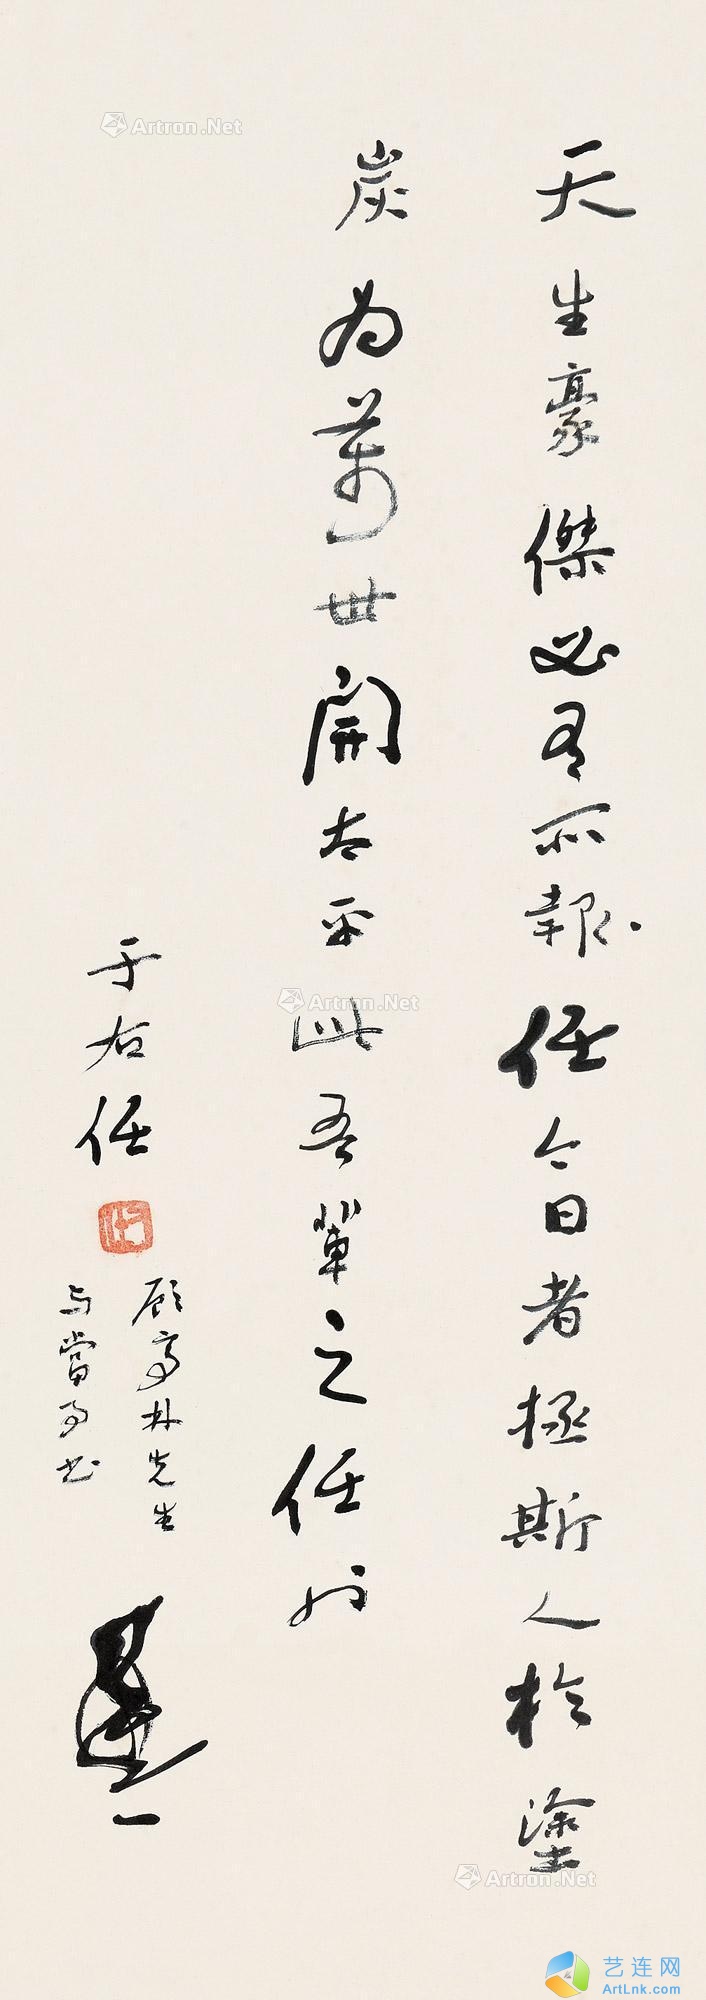 天生豪傑必有所報任今日者拯斯人於塗
炭為萬世開太平此吾輩之任也
于右任
顧亭林先生
与當事書
Artron.Net
Artron.Net
Artron.Net
艺连网
ArtLnk.com